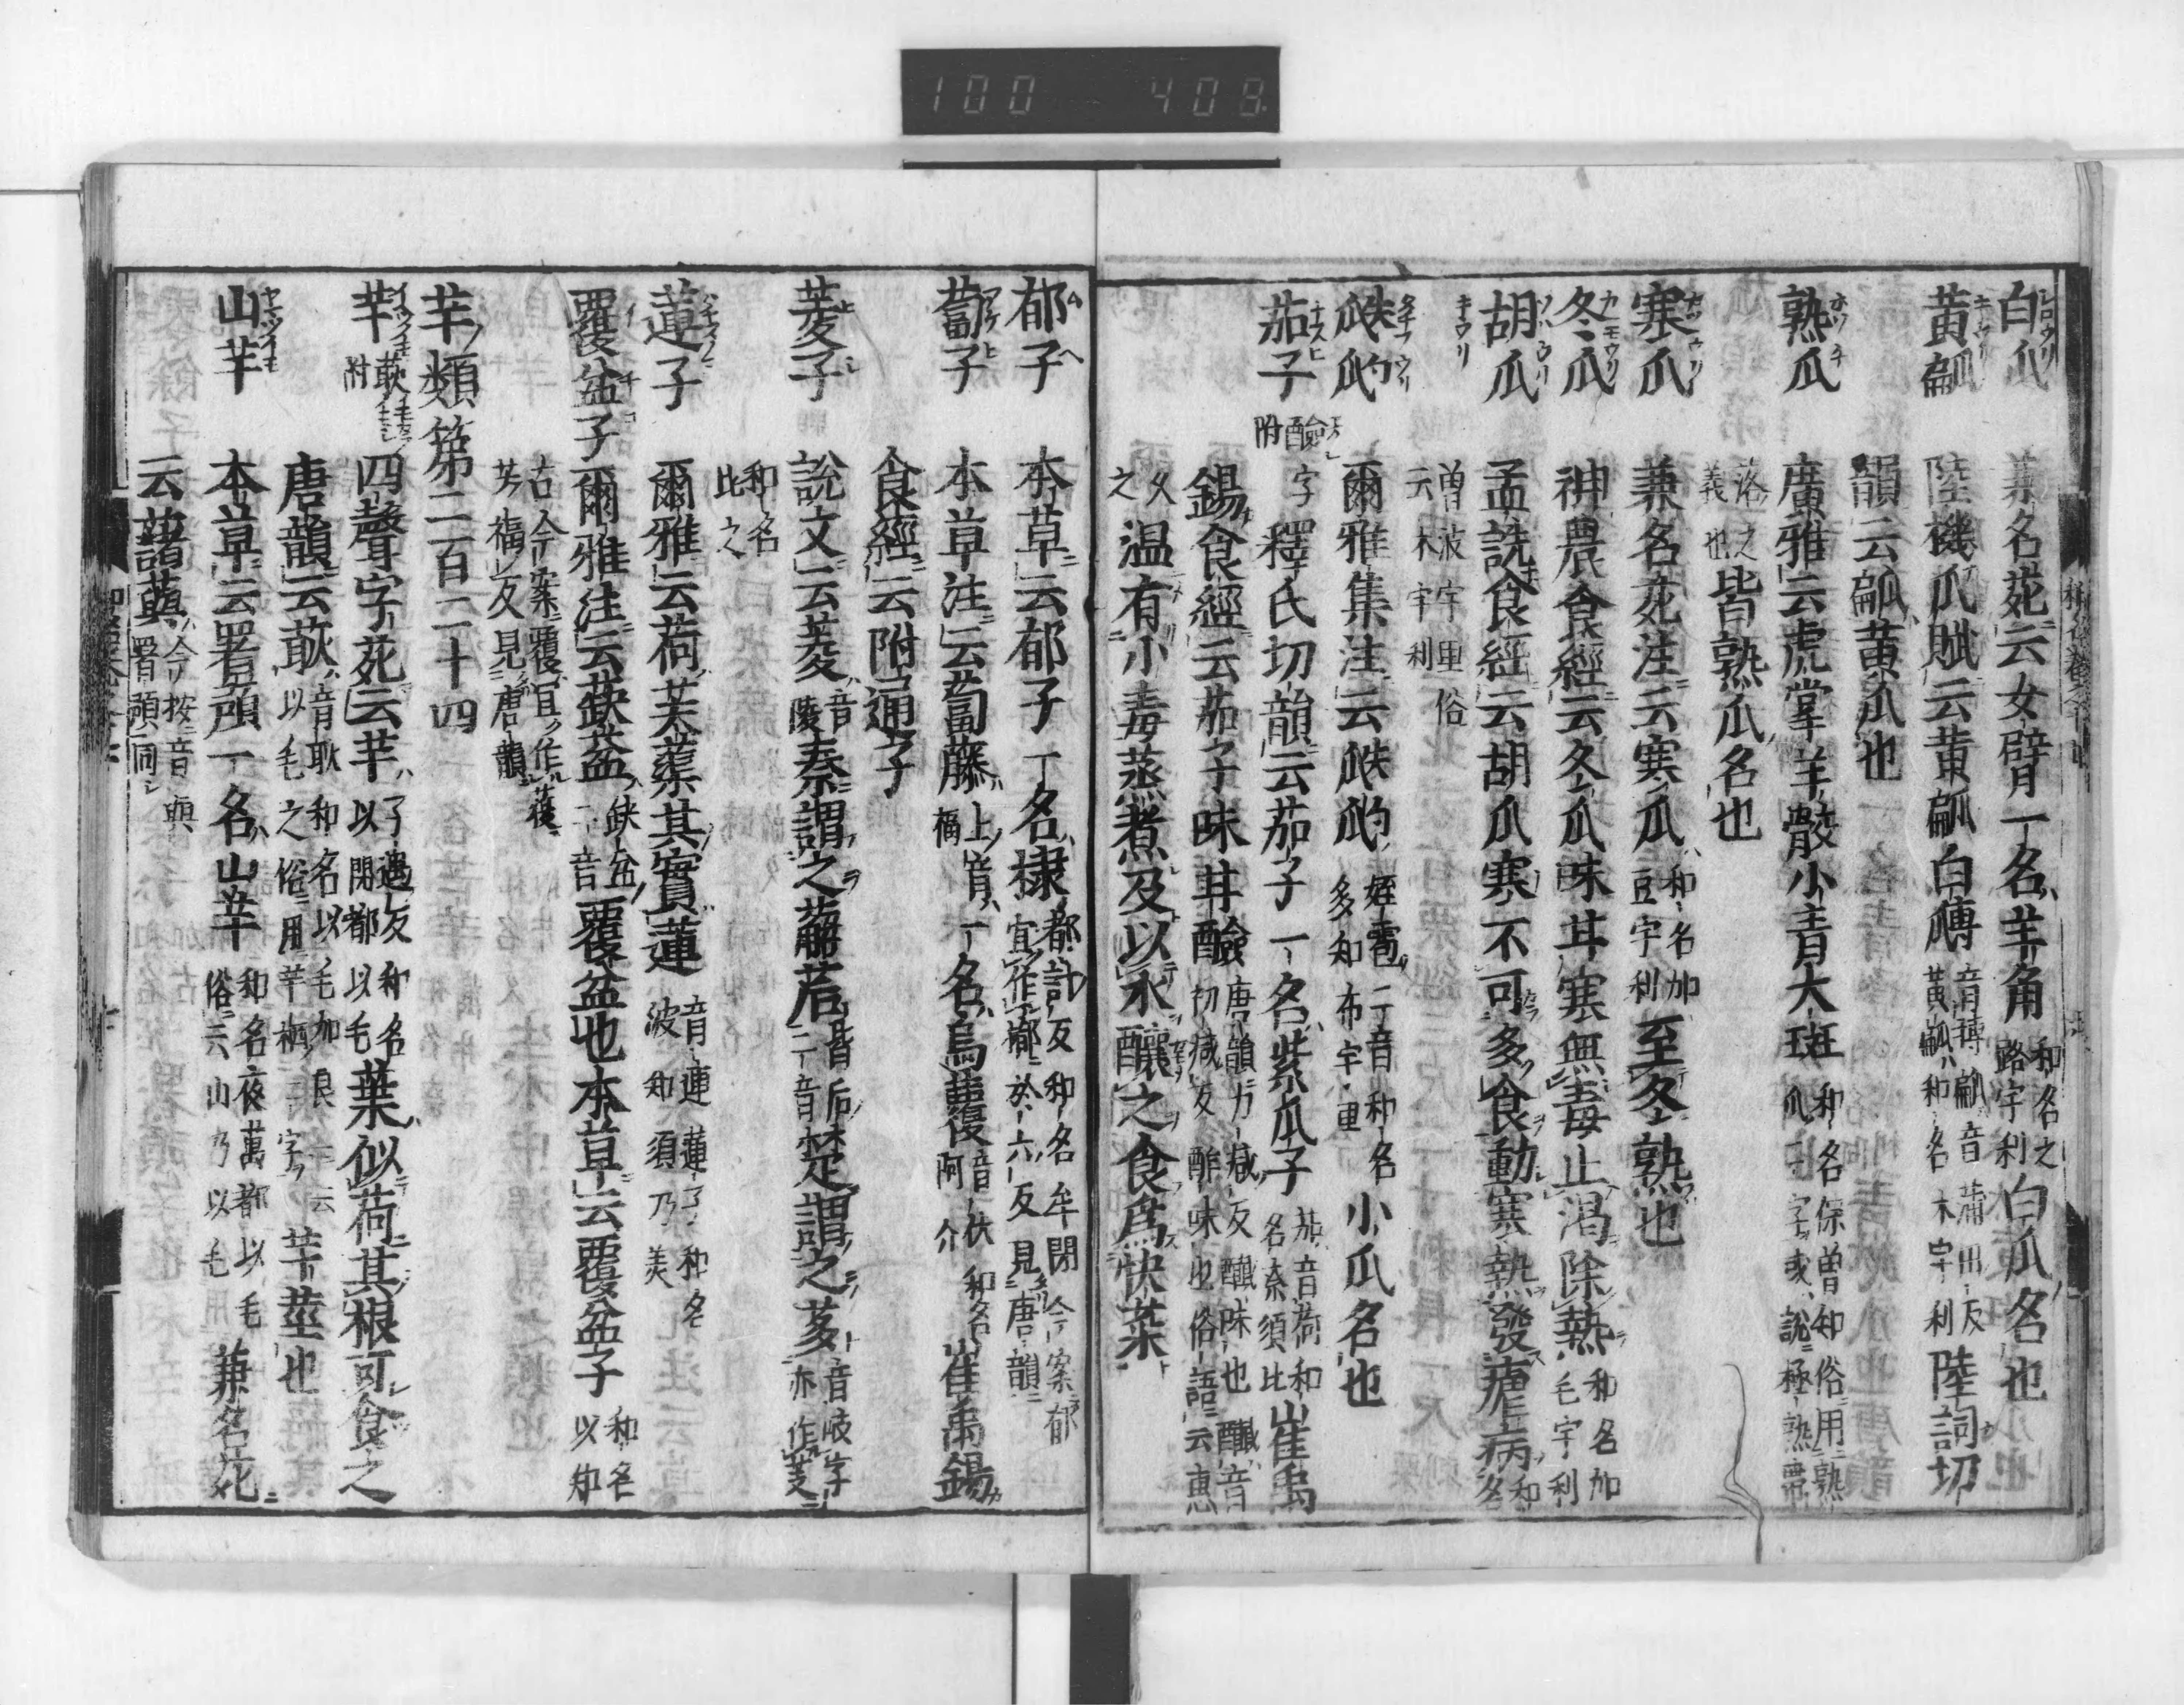 100 408
白瓜 兼名苑云女臂一名羊角 和名之路宇利 白瓜名也
黄㼐 陸機瓜賦云黄㼐白𤬛 音轉㼐音蒲田反黄㼐和名木宇利 陸詞切
韻云㼐黄瓜也
熟瓜 廣雅云虎掌羊骹小青大斑 和名保曽知俗用熟瓜二字或説極熟蔕
落之義也 皆熟瓜名也
寒瓜 兼名苑注云寒瓜 和名加豆宇利 至冬熟也
冬瓜 神農食經云冬瓜味甘寒無毒止渇除熱 和名加毛宇利
胡瓜 孟詵食經云胡瓜寒不可多食動寒熱發瘧病 和名
曽波宇里俗云木宇利
㼋瓝 爾雅集注云㼋瓝 姪雹二音和名多知布宇里 小瓜名也
茄子 醶字附 釋氏切韻云茄子一名紫瓜子 茄音荷和名奈須比 崔禹
錫食經云茄子味甘醶 唐韻力減反醶味也醶音初減反酢味也俗語云恵
久之 温有小毒蒸煮及以水醸之食爲快菜
郁子 本草云郁子一名棣 都計反和名牟閇今案郁宜作㮋於六反見唐韻
葍子 本草注云葍藤 上音福 一名烏葍 音伏和名阿介 崔禹錫
食經云附通子
菱子 説文云菱 音陵 秦謂之薢茩 皆后二音 楚謂之芰 音岐字亦作茤
和名比之
蓮子 爾雅云荷芙蕖其實蓮 音連和名波知須乃美
覆盆子 爾雅注云蒛盆 缺盆二音 覆盆也本草云覆盆子 和名以知
古今案覆宜作蕧芳福反見唐韻
芋類第二百二十四
芋 䒚附 四聲字苑云芋 于遇反和名以閇都以毛 葉似荷其根可食之
唐韻云䒚 音耿和名以毛加良一云以毛之俗用芋柄二字 芋莖也
山芋 本草云署預一名山芋 和名夜萬都以毛俗云山乃以毛 兼名苑
云藷藇 今按音與署預同